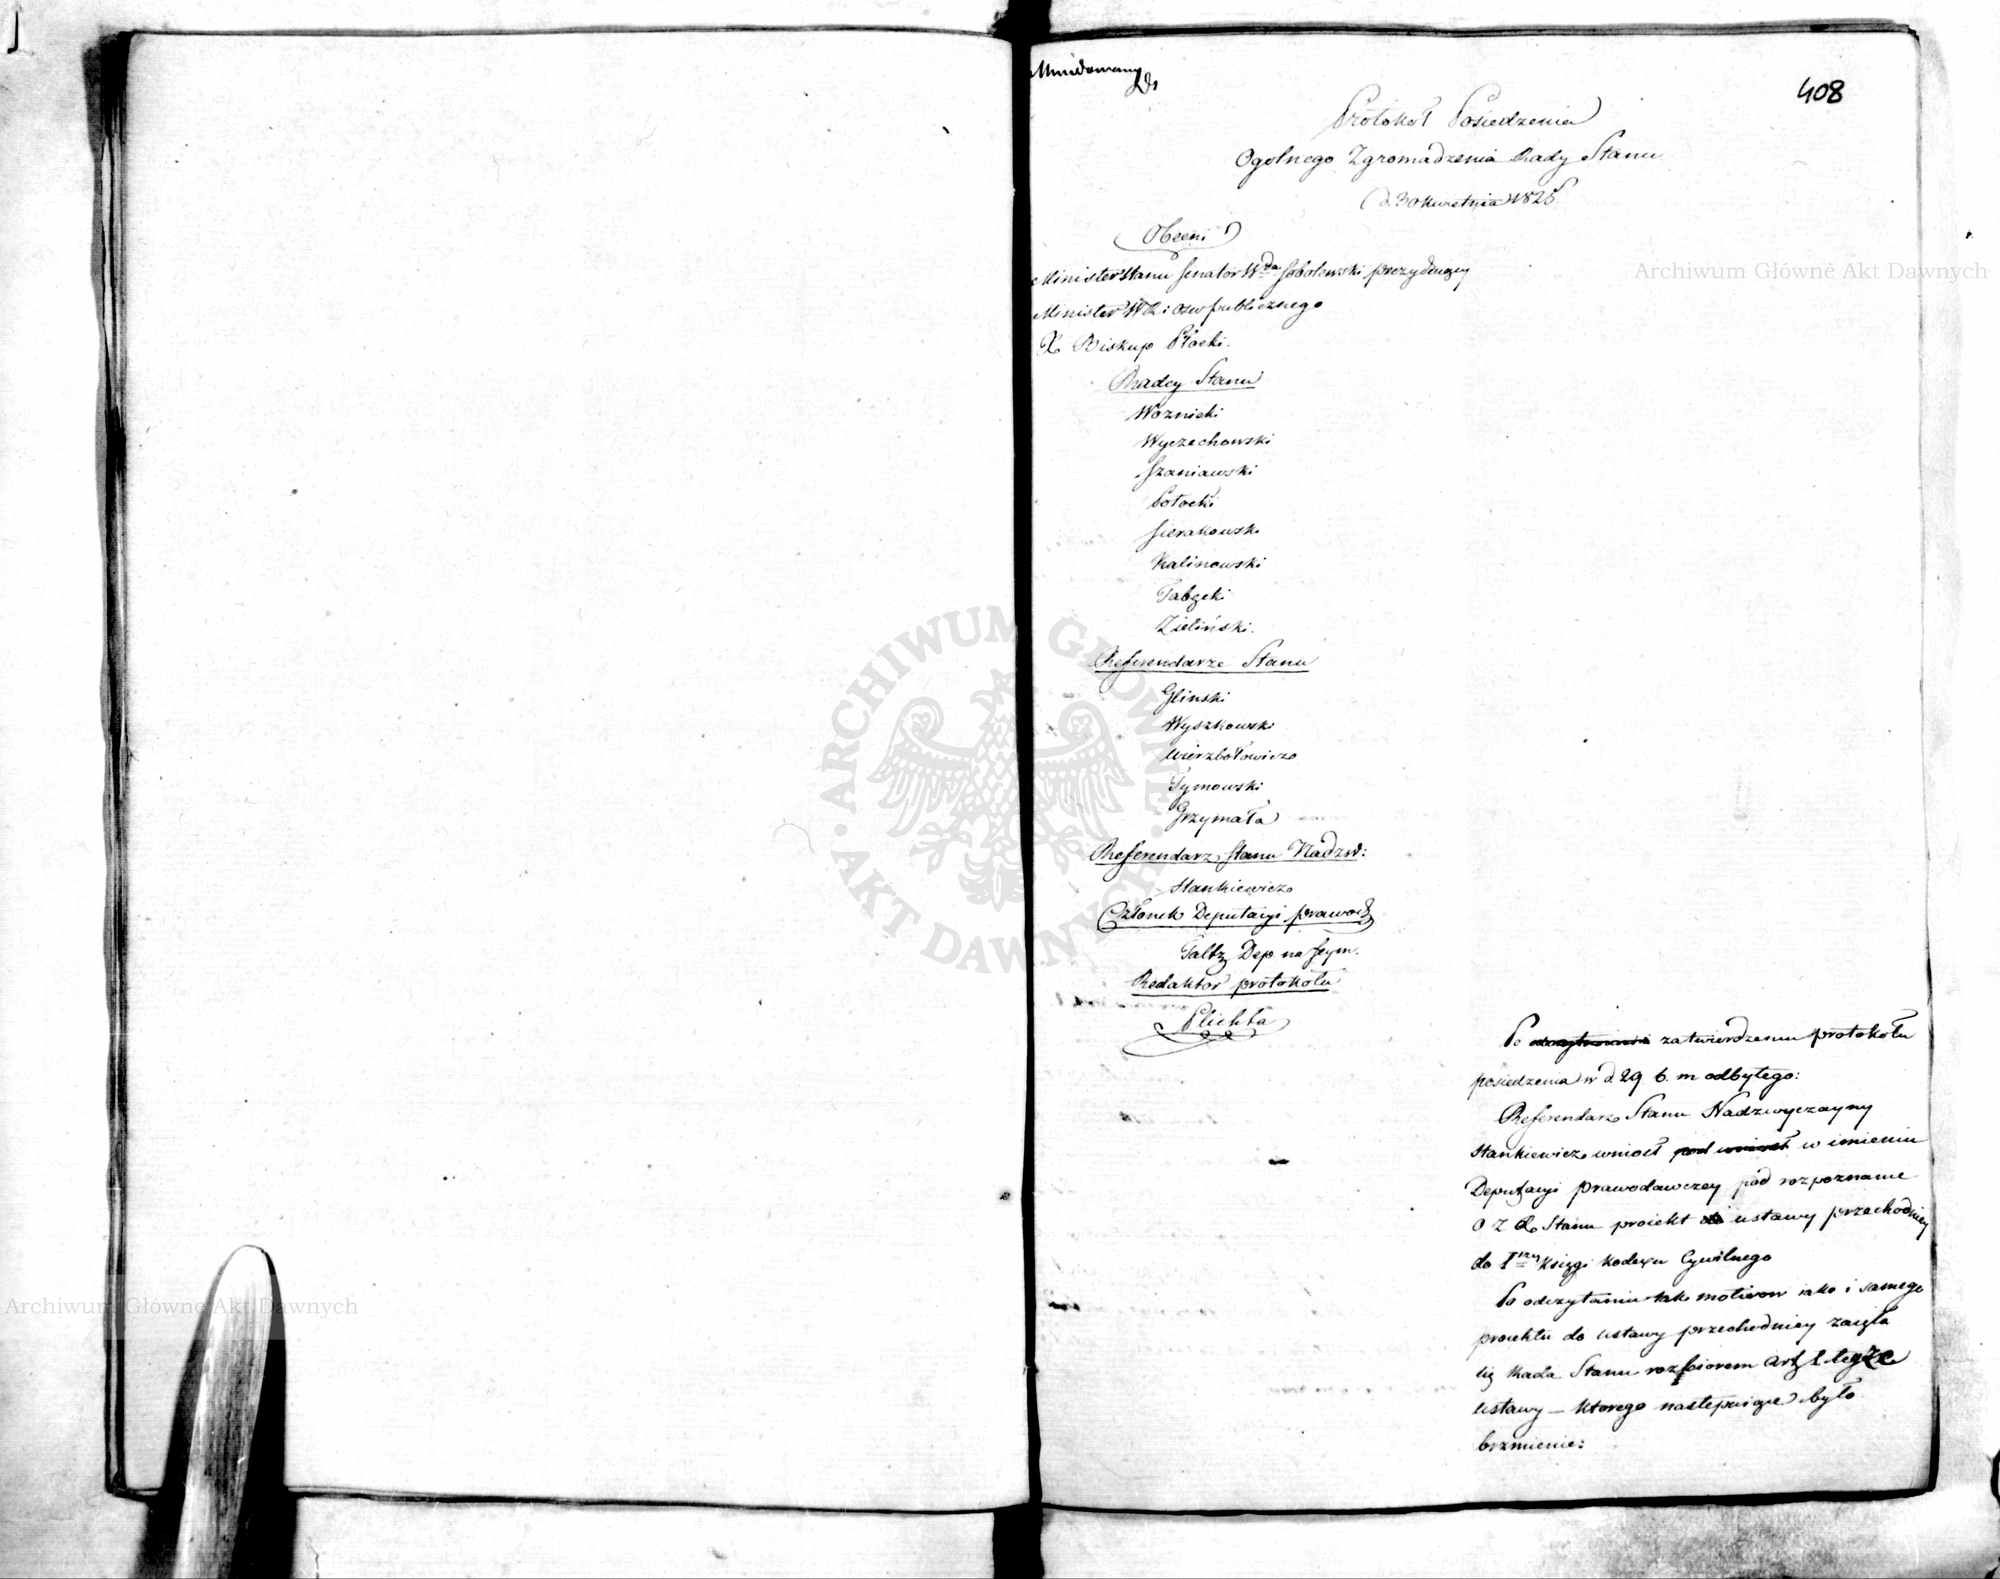 408
Protokoł Posiedzenia
Ogolnego Zgromadzenia Rady Stanu
d. 30 Kwietnia 1825
Obecni
Minister Stanu Senator Wda Sobolewski prezydujący
Minister WR i Osw publicznego
X Biskup Płocki.
Radcy Stanu
Woznicki
Wyczechowski
Szaniawski
Potocki
Sierakowski
Kalinowski
Tabęcki
Zieliński.
Referendarze Stanu
Glinski
Wyszkowski
Wierzbołowicz
Tymowski
Grzymała
Referendarz Stanu Nadzw:
Stankiewicz
Członek Deputacyi prawod
Faltz Dep na Seym.
Redaktor protokołu
Plichta
Po odczytaniu zatwierdzeniu protokołu
posiedzenia w d. 29 b. m odbytego:
Referendarz Stanu Nadzwyczayny
Stankiewicz wniosł pod wniosł w imieniu
Deputacyi prawodawczey pod rozpoznanie
O Z R Stanu proiekt do ustawy przechodniey
do Iszey Księgi Kodexu Cywilnego
Po odczytaniu tak motivow iako i samego
proiektu do ustawy przechodniey zaięła
się Rada Stanu rozbiorem Art 1 teyże
ustawy – ktorego następuiące było
brzmienie:
Archiwum Główne Akt Dawnych
Archiwum Główne Akt Dawnych
ARCHIWUM GŁÓWNE · AKT DAWNYCH ·